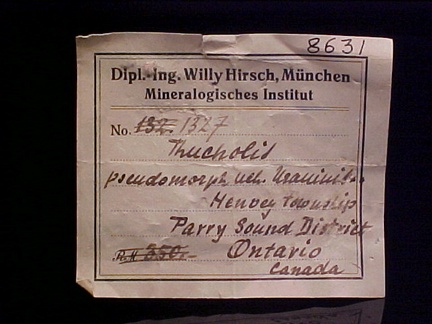 8631
Dipl.-Ing. Willy Hirsch, München
Mineralogisches Institut
No. 132. 1327
Thucholit
pseudomorph nch. Uraninit
Henvey Township
Parry Sound District
350.- Ontario
Canada